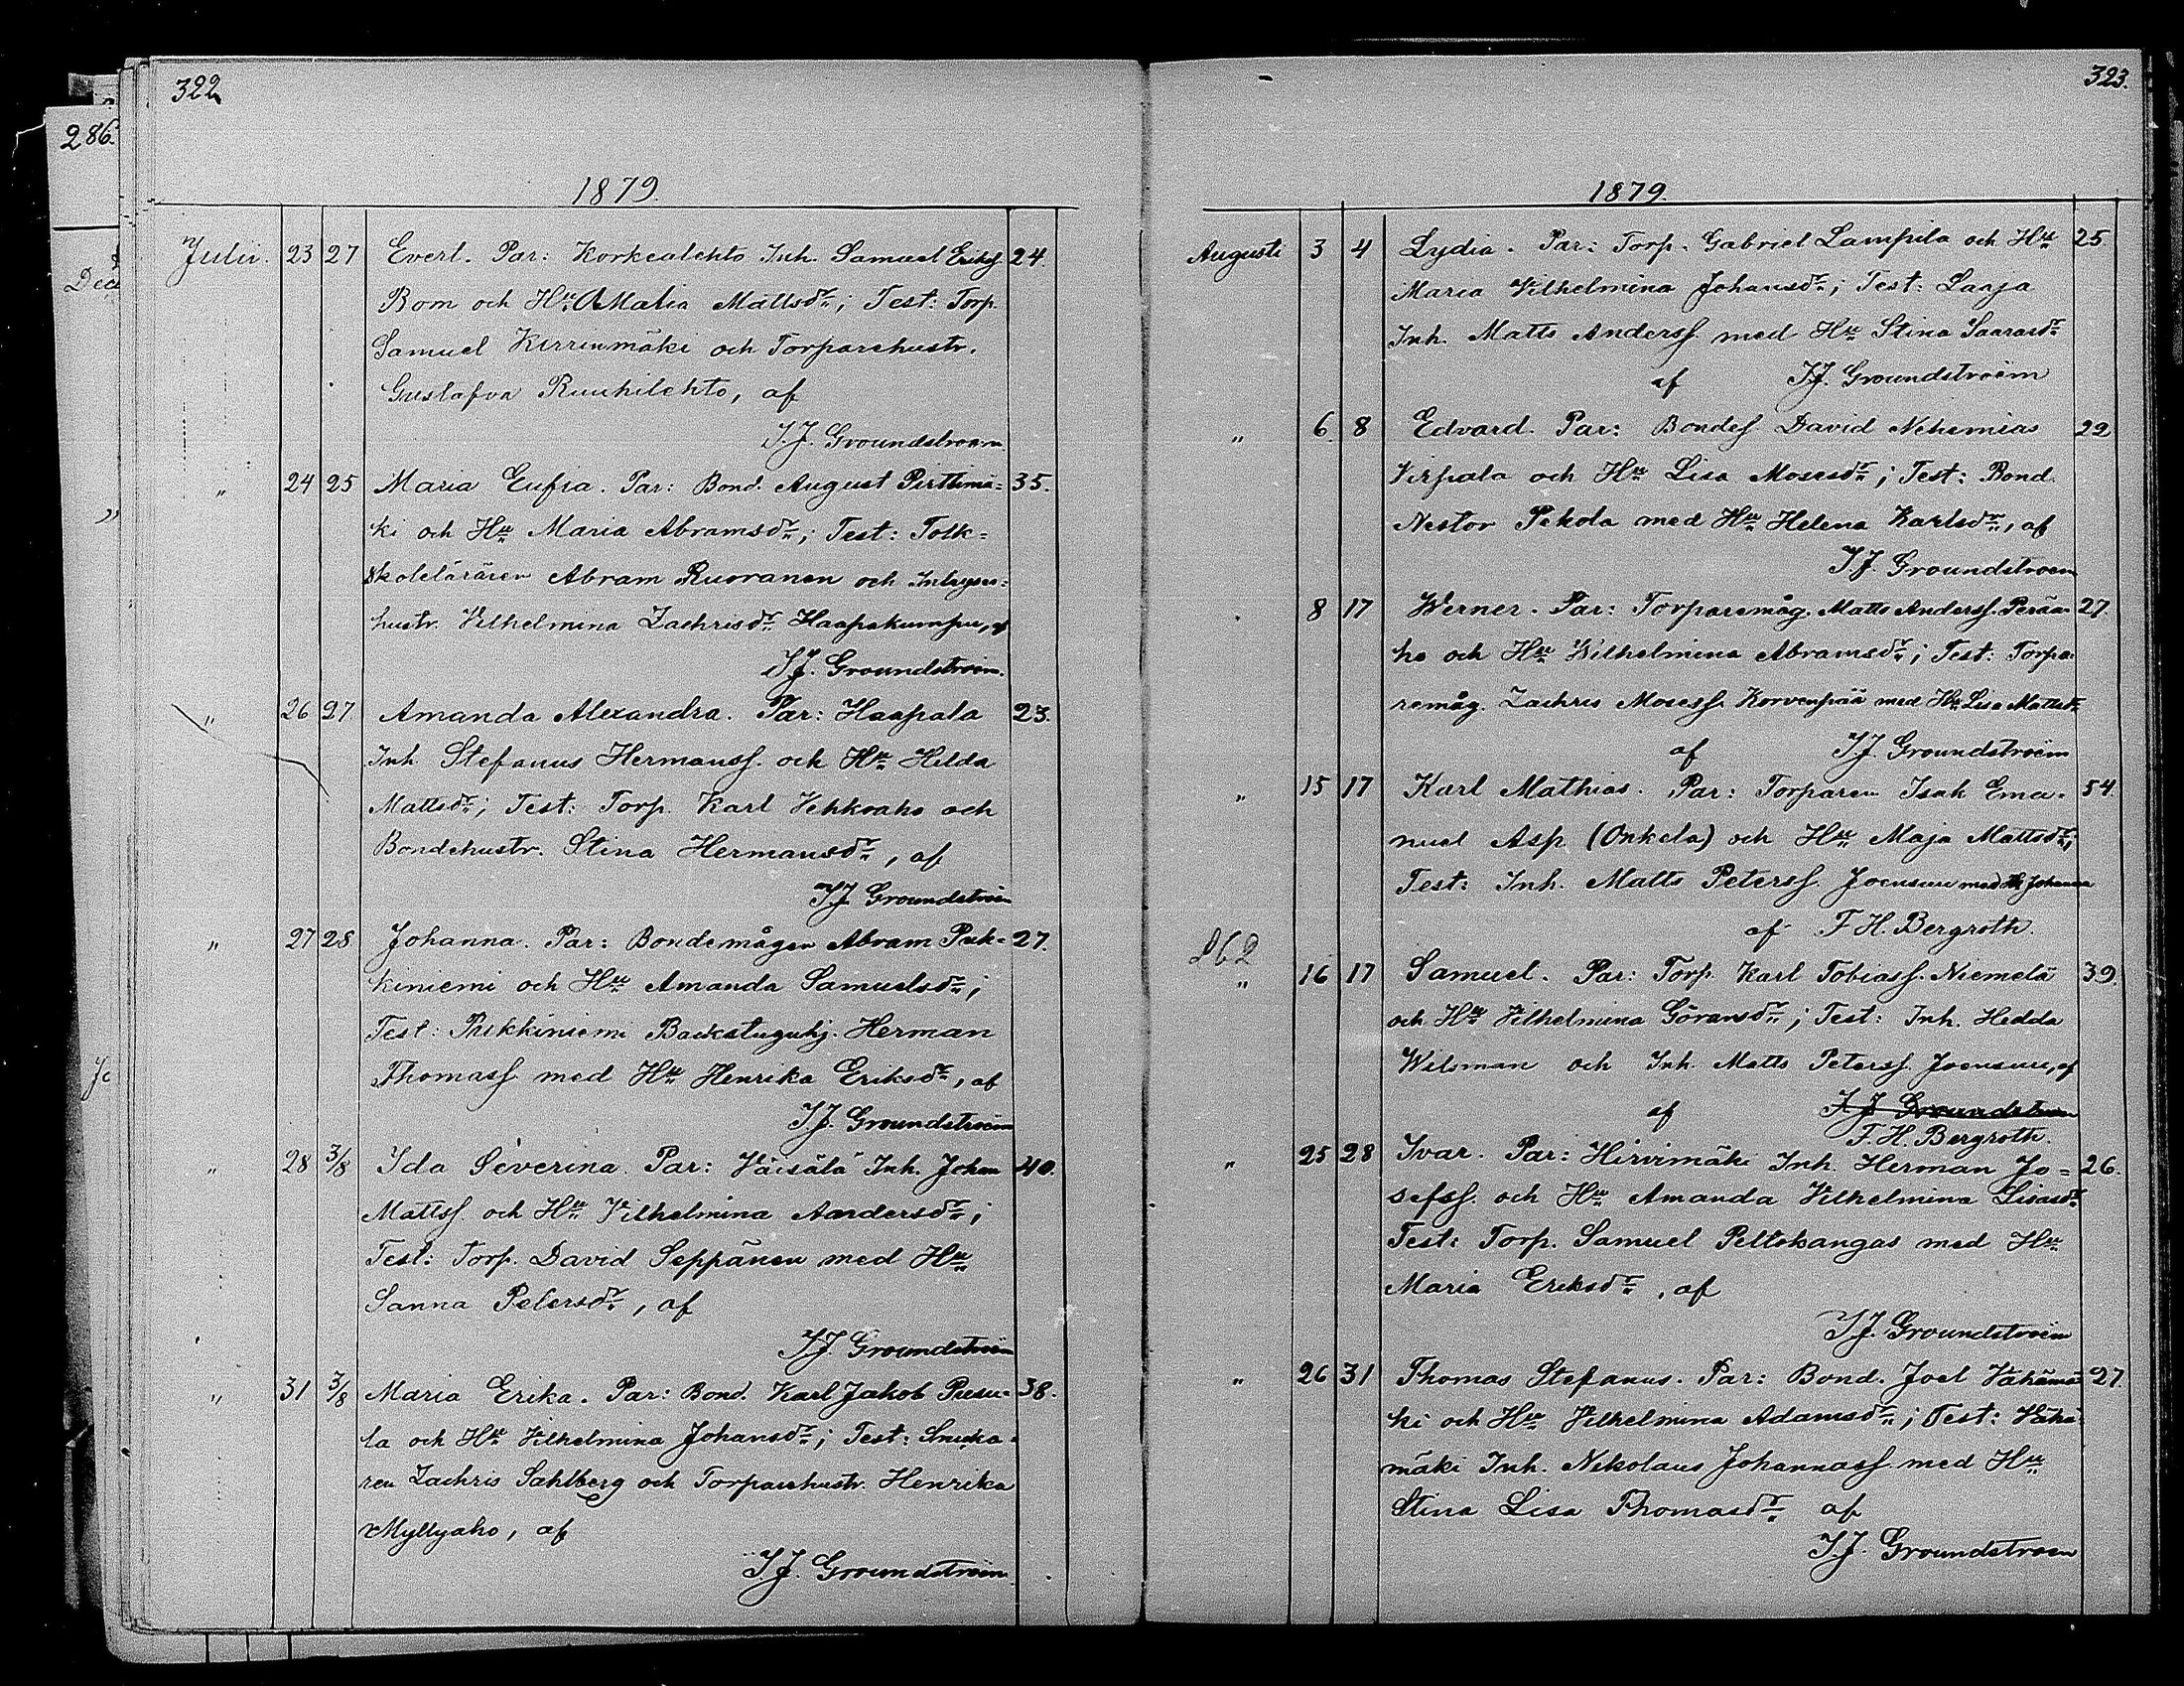 322
286.
1879.
Julii. 23 27 Evert. Par: Korkealehto Inh. Samuel Eriksſ 24.
Bom och Hu Maria Mattsdr; Test: Torp.
Samuel Kirrinmäki och Torparehustr.
Gustafva Ruuhilehto, af
I.J. Groundstroem.
" 24 25 Maria Eufia. Par: Bond. August Pirttimä= 35.
ki och Hu Maria Abramsdr; Test: Folk=
skoleläraren Abram Ruoranen och Inhyses=
hustr. Vilhelmina Zachrisdr Haapakumpu, af
I.J. Groundstroem.
" 26 27. Amanda Alexandra. Par: Haapala 23.
Inh Stefanus Hermansſ. och Hu Hilda
Mattsdr; Test: Torp. Karl Vehkoaho och
Bondehustr. Stina Hermansdr, af
I.J. Groundstroem
" 27 28 Johanna. Par: Bondemågen Abram Puk= 27.
kiniemi och Hu Amanda Samuelsdr;
Test: Pukkiniemi Backstuguhj. Herman
Thomasſ med Hu Henrika Eriksdr, af
I.J. Groundstroem
" 28 3/8 Ida Severina. Par: Väisälä Inh. Johan 40.
Mattsſ. och Hu Vilhelmina Andersdr;
Test: Torp. David Seppänen med Hu
Sanna Petersdr, af
I.J. Groundstroem
" 31 3/8 Maria Erika. Par: Bond. Karl Jakob Pusu= 38.
la och Hu Vilhelmina Johansdr; Test: Snicka=
ren Zachris Sahlberg och Torparehustr. Henrika
Myllyaho, af
I.J. Groundstroem.
323.
1879.
Augusti 3 4 Lydia. Par: Torp. Gabriel Lampila och Hu 25
Maria Vilhelmina Johansdr; Test: Laaja
Inh. Matts Andersſ. med Hu Stina Saarasdr
af I.J. Groundstroem
" 6. 8 Edvard. Par: Bondeſ David Nehemias 22
Virpala och Hu Lisa Mosesdr; Test: Bond.
Nestor Pekola med Hu Helena Karlsdr, af
I.J. Groundstroem
" 8 17 Werner. Par: Torparemåg. Matts Andersſ. Perää= 27
ho och Hu Wilhelmina Abramsdr; Test: Torpa=
remåg. Zachris Mosesſ. Korvenpää med Hu Lisa Mattsdr
af I.J. Groundstroem
" 15 17 Karl Mathias. Par: Torparen Isak Ema= 54.
nuel Asp (Onkela) och Hu Maja Mattsdr;
Test: Inh. Matts Petersſ. Joensuu med Hu Johanna
af F.H. Bergroth.
262
" 16 17 Samuel. Par: Torp. Karl Tobiasſ. Niemelä 39.
och Hu Vilhelmina Göransdr; Test: Inh. Hedda
Wilsman och Inh. Matts Petersſ. Joensuu, af
af I.J. Groundstroem
F.H. Bergroth.
" 25 28 Ivar. Par: Hirvimäki Inh. Herman Jo= 26.
sefsſ. och Hu Amanda Vilhelmina Lisasdr
Test: Torp. Samuel Peltokangas med Hu
Maria Eriksdr, af
I.J. Groundstroem
" 26 31 Thomas Stefanus. Par: Bond. Joel Vähämä= 27.
ki och Hu Vilhelmina Adamsdr; Test: Vähä
mäki Inh. Nikolaus Johannasſ. med Hu
Stina Lisa Thomasdr af
I.J. Groundstroem